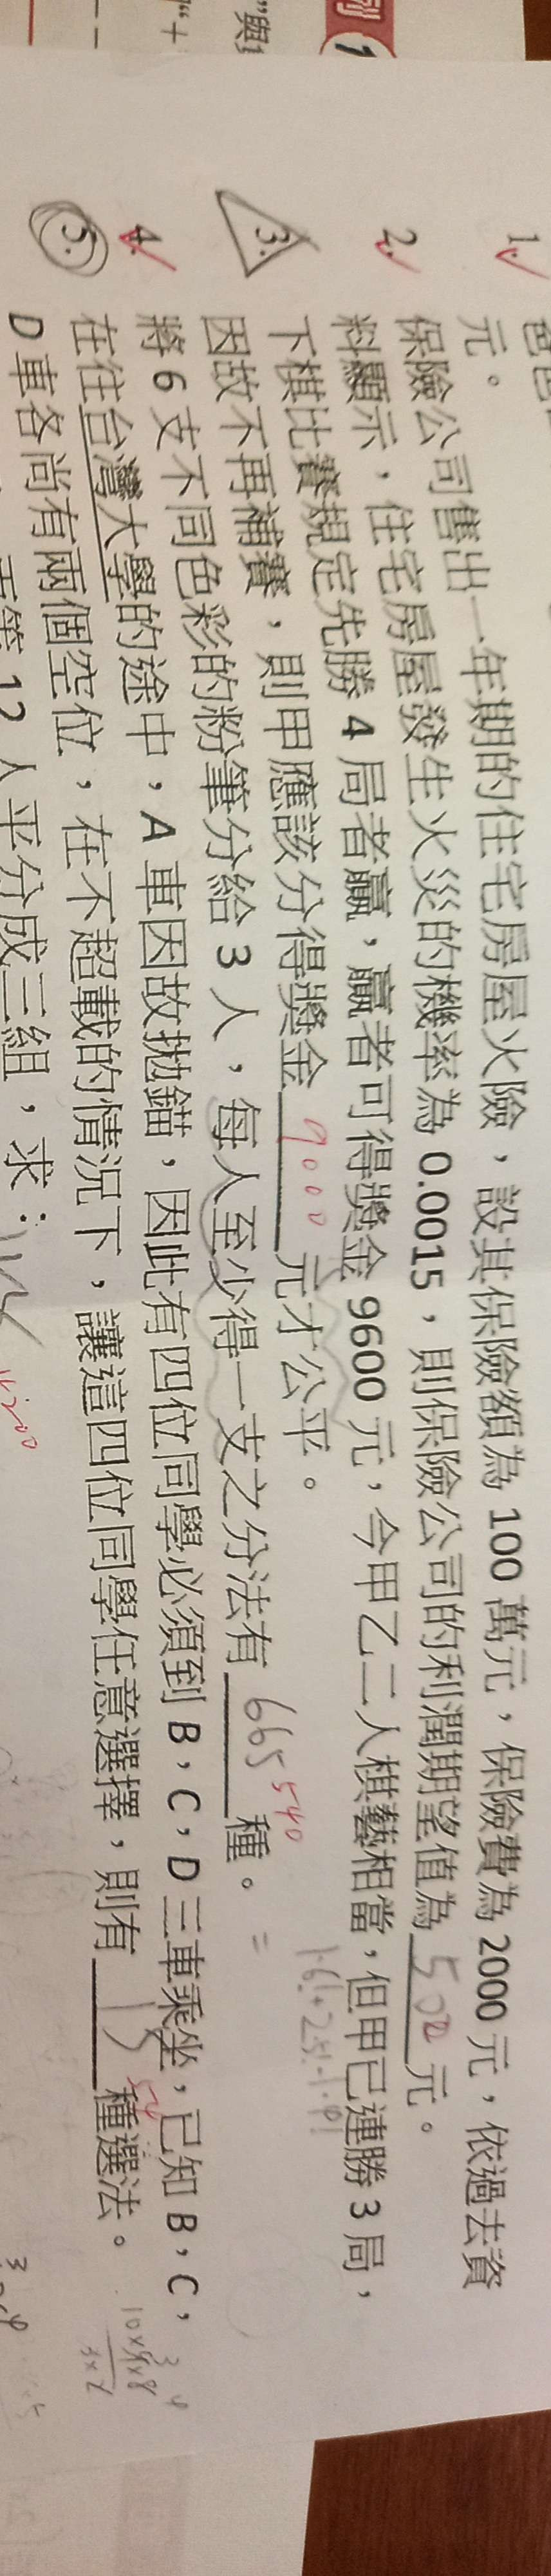 列 1
"與
"+
元。
1. 保險公司售出一年期的住宅房屋火險，設其保險額為 100 萬元，保險費為 2000 元，依過去資
料顯示，住宅房屋發生火災的機率為 0.0015，則保險公司的利潤期望值為 500 元。
2. 下棋比賽規定先勝 4 局者贏，贏者可得獎金 9600 元，今甲乙二人棋藝相當，但甲已連勝 3 局，
因故不再補賽，則甲應該分得獎金 9000 元才公平。
3. 將 6 支不同色彩的粉筆分給 3 人，每人至少得一支之分法有 665 540 種。
4. 在往台灣大學的途中，A 車因故拋錨，因此有四位同學必須到 B，C，D 三車乘坐，已知 B，C，
D 車各尚有兩個空位，在不超載的情況下，讓這四位同學任意選擇，則有 15 54 種選法。
5. 12 人平分成三組，求：